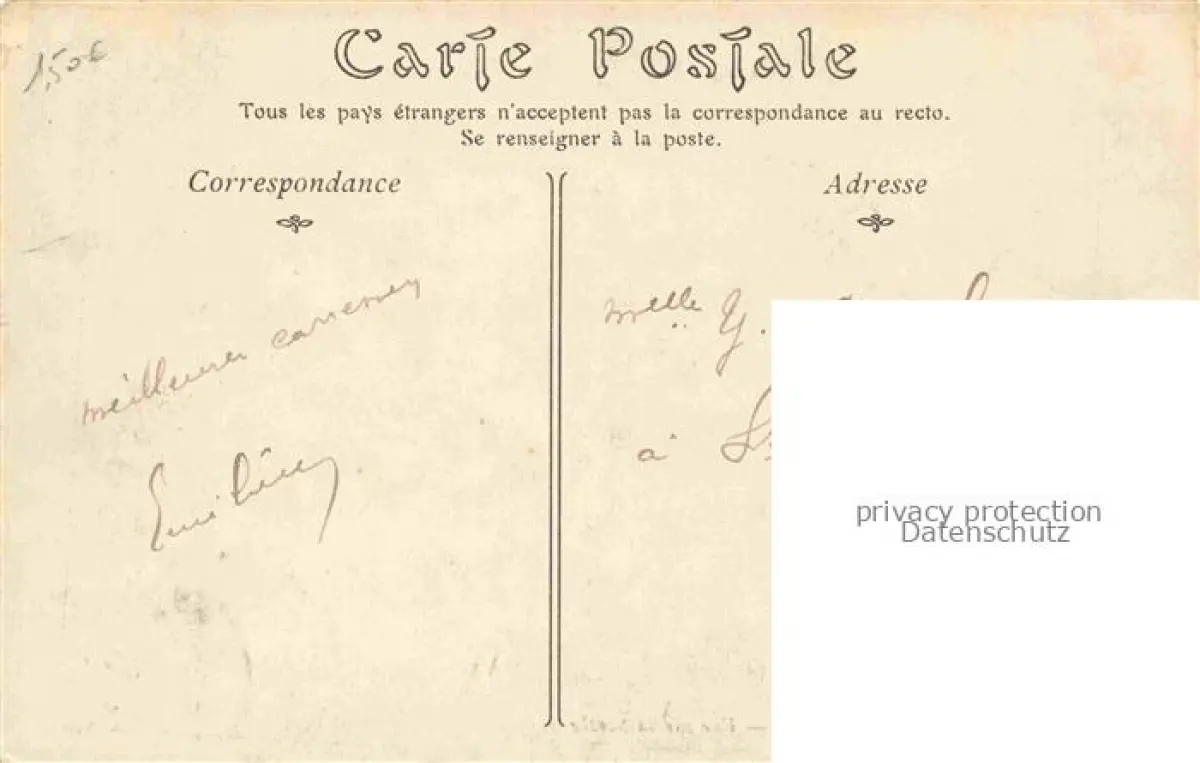 1,50€
Carte Postale
Tous les pays étrangers n'acceptent pas la correspondance au recto.
Se renseigner à la poste.
Correspondance
Adresse
meilleures caresses
melle Y.
à
privacy protection
Datenschutz